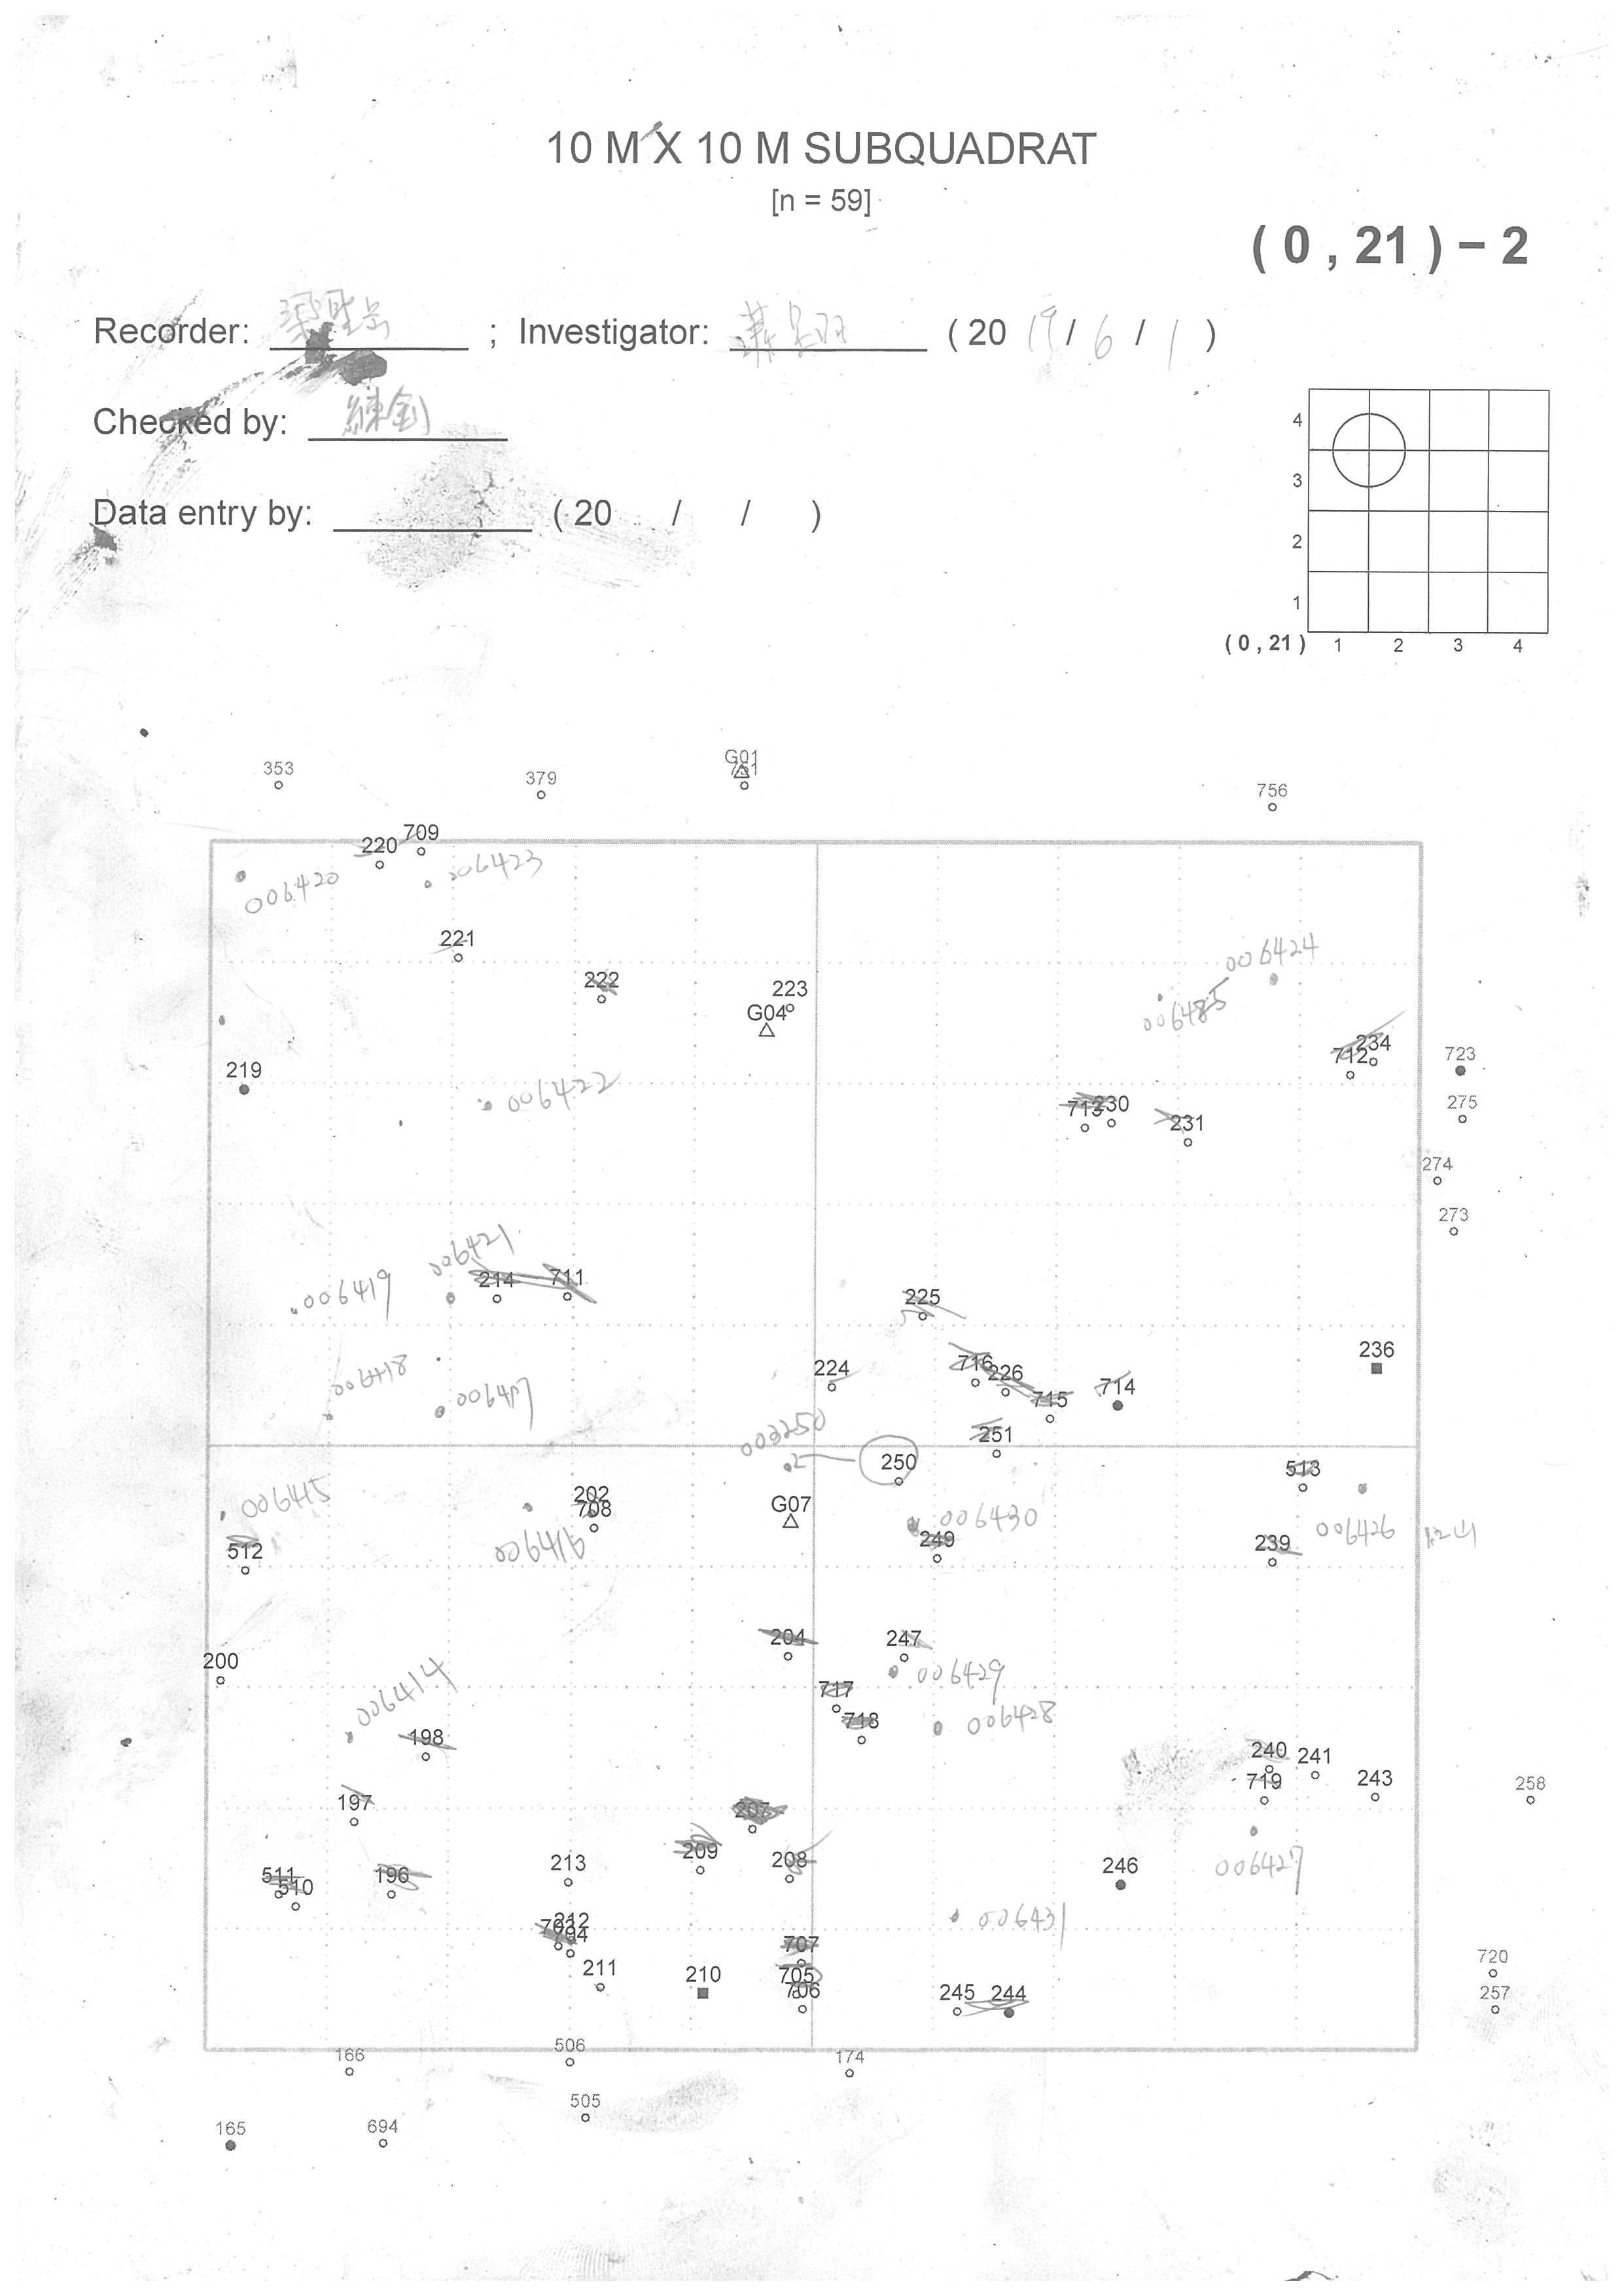 10 M X 10 M SUBQUADRAT
[n = 59]
( 0 , 21 ) − 2
Recorder: ; Investigator: ( 20 19 / 6 / 1 )
Checked by: 練釗
Data entry by: ( 20 / / )
4
3
2
1
( 0 , 21 ) 1 2 3 4
353 379 G01 751 756
220 709
006420 006423
221
222 223
G04
006424
006485
219
712 234 723
006422
713 230 231 275
274
273
006421
006419 214 711
225
006418 006417
224 716 226 715 714 236
003250
251
250
513
006415 202 708 G07 006430 006426
512 006416 249 239
204 247
200
006429
006414
717 718 006428
198
240 241 243 258
719
197
207
209 208
006427
511 510 196 213 246
212
703 704
006431
707
211 210 705 706 245 244
720
257
166 506 174
505
165 694